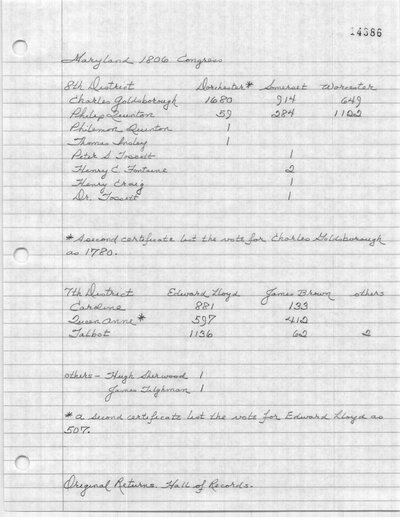 14386
Maryland 1806 Congress
8th District Dorchester* Somerset Worcester
Charles Goldsborough 1680 914 649
Philip Quinton 59 284 1122
Philemon Quinton 1
Thomas Insley 1
Peter S. Tossett 1
Henry C. Fontaine 2
Henry Craig 1
Dr. Tossett 1
* A second certificate list the vote for Charles Goldsborough
as 1780.
7th District Edward Lloyd James Brown others
Caroline 881 133
Queen Anne* 597 412
Talbot 1136 62 2
others - Hugh Sherwood 1
James Tilghman 1
* a second certificate list the vote for Edward Lloyd as
507.
Original Returns. Hall of Records.